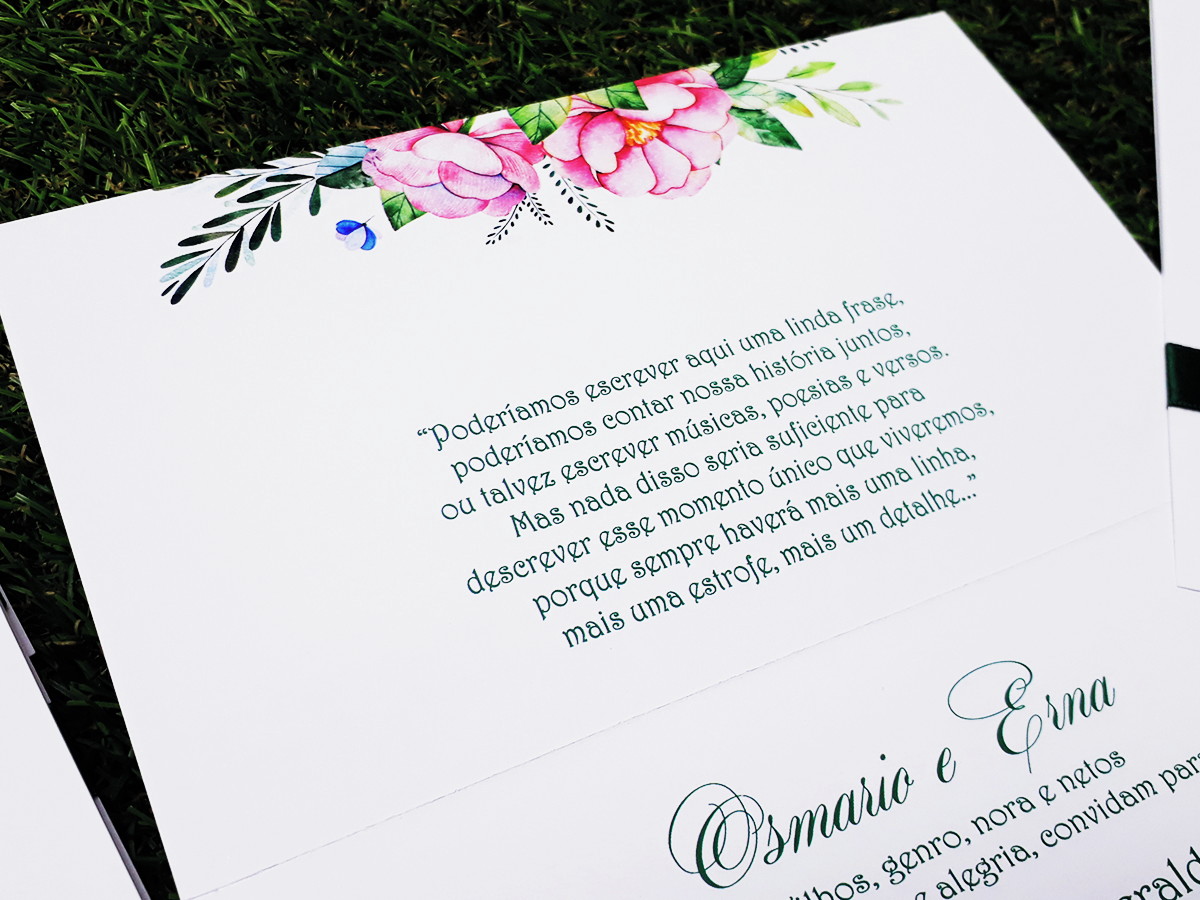 “Poderíamos escrever aqui uma linda frase,
poderíamos contar nossa história juntos,
ou talvez escrever músicas, poesias e versos.
Mas nada disso seria suficiente para
descrever esse momento único que viveremos,
porque sempre haverá mais uma linha,
mais uma estrofe, mais um detalhe...”
Osmario e Erna
genro, nora e netos
alegria, convidam